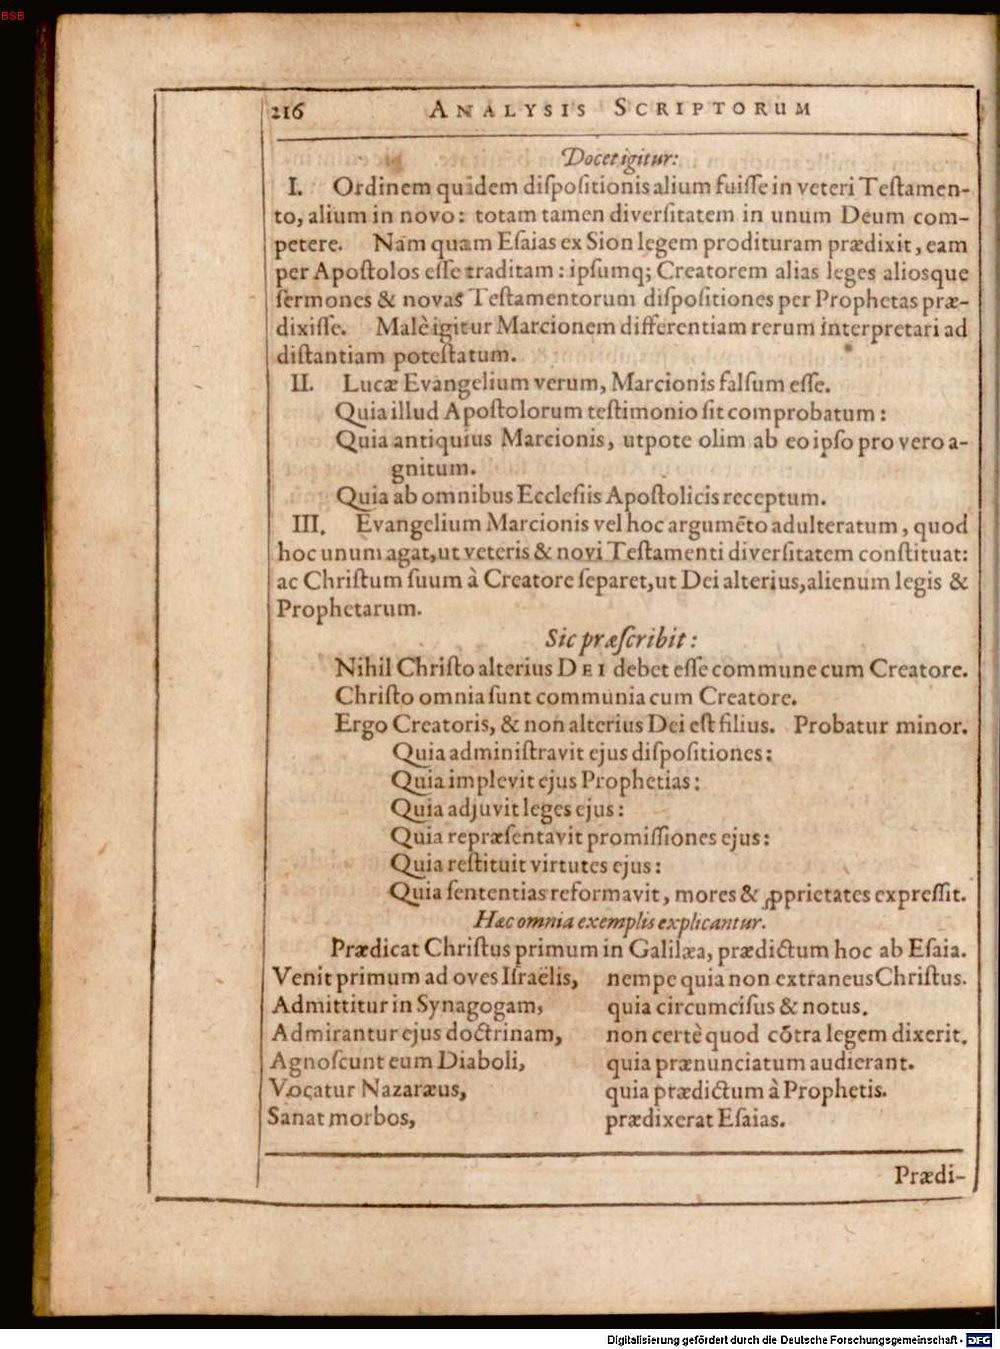 BSB
216 ANALYSIS SCRIPTORUM
Docet igitur:
I. Ordinem quidem diſpoſitionis alium fuiſſe in veteri Teſtamen-
to, alium in novo: totam tamen diverſitatem in unum Deum com-
petere. Nam quam Eſaias ex Sion legem prodituram prædixit, eam
per Apoſtolos eſſe traditam: ipſumq; Creatorem alias leges aliosque
ſermones & novas Teſtamentorum diſpoſitiones per Prophetas præ-
dixiſſe. Malè igitur Marcionem differentiam rerum interpretari ad
diſtantiam poteſtatum.
II. Lucæ Evangelium verum, Marcionis falſum eſſe.
Quia illud Apoſtolorum teſtimonio ſit comprobatum:
Quia antiquius Marcionis, utpote olim ab eo ipſo pro vero a-
gnitum.
Quia ab omnibus Eccleſiis Apoſtolicis receptum.
III. Evangelium Marcionis vel hoc argumẽto adulteratum, quod
hoc unum agat, ut veteris & novi Teſtamenti diverſitatem conſtituat:
ac Chriſtum ſuum à Creatore ſeparet, ut Dei alterius, alienum legis &
Prophetarum.
Sic præſcribit:
Nihil Chriſto alterius DEI debet eſſe commune cum Creatore.
Chriſto omnia ſunt communia cum Creatore.
Ergo Creatoris, & non alterius Dei eſt filius. Probatur minor.
Quia adminiſtravit ejus diſpoſitiones:
Quia implevit ejus Prophetias:
Quia adjuvit leges ejus:
Quia repræſentavit promiſſiones ejus:
Quia reſtituit virtutes ejus:
Quia ſententias reformavit, mores & ꝓprietates expreſſit.
Hæc omnia exemplis explicantur.
Prædicat Chriſtus primum in Galilæa, prædictum hoc ab Eſaia.
Venit primum ad oves Iſraëlis, nempe quia non extraneus Chriſtus.
Admittitur in Synagogam, quia circumciſus & notus.
Admirantur ejus doctrinam, non certè quod cõtra legem dixerit.
Agnoſcunt eum Diaboli, quia prænunciatum audierant.
Vocatur Nazaræus, quia prædictum à Prophetis.
Sanat morbos, prædixerat Eſaias.
Prædi-
Digitalisierung gefördert durch die Deutsche Forschungsgemeinschaft - DFG